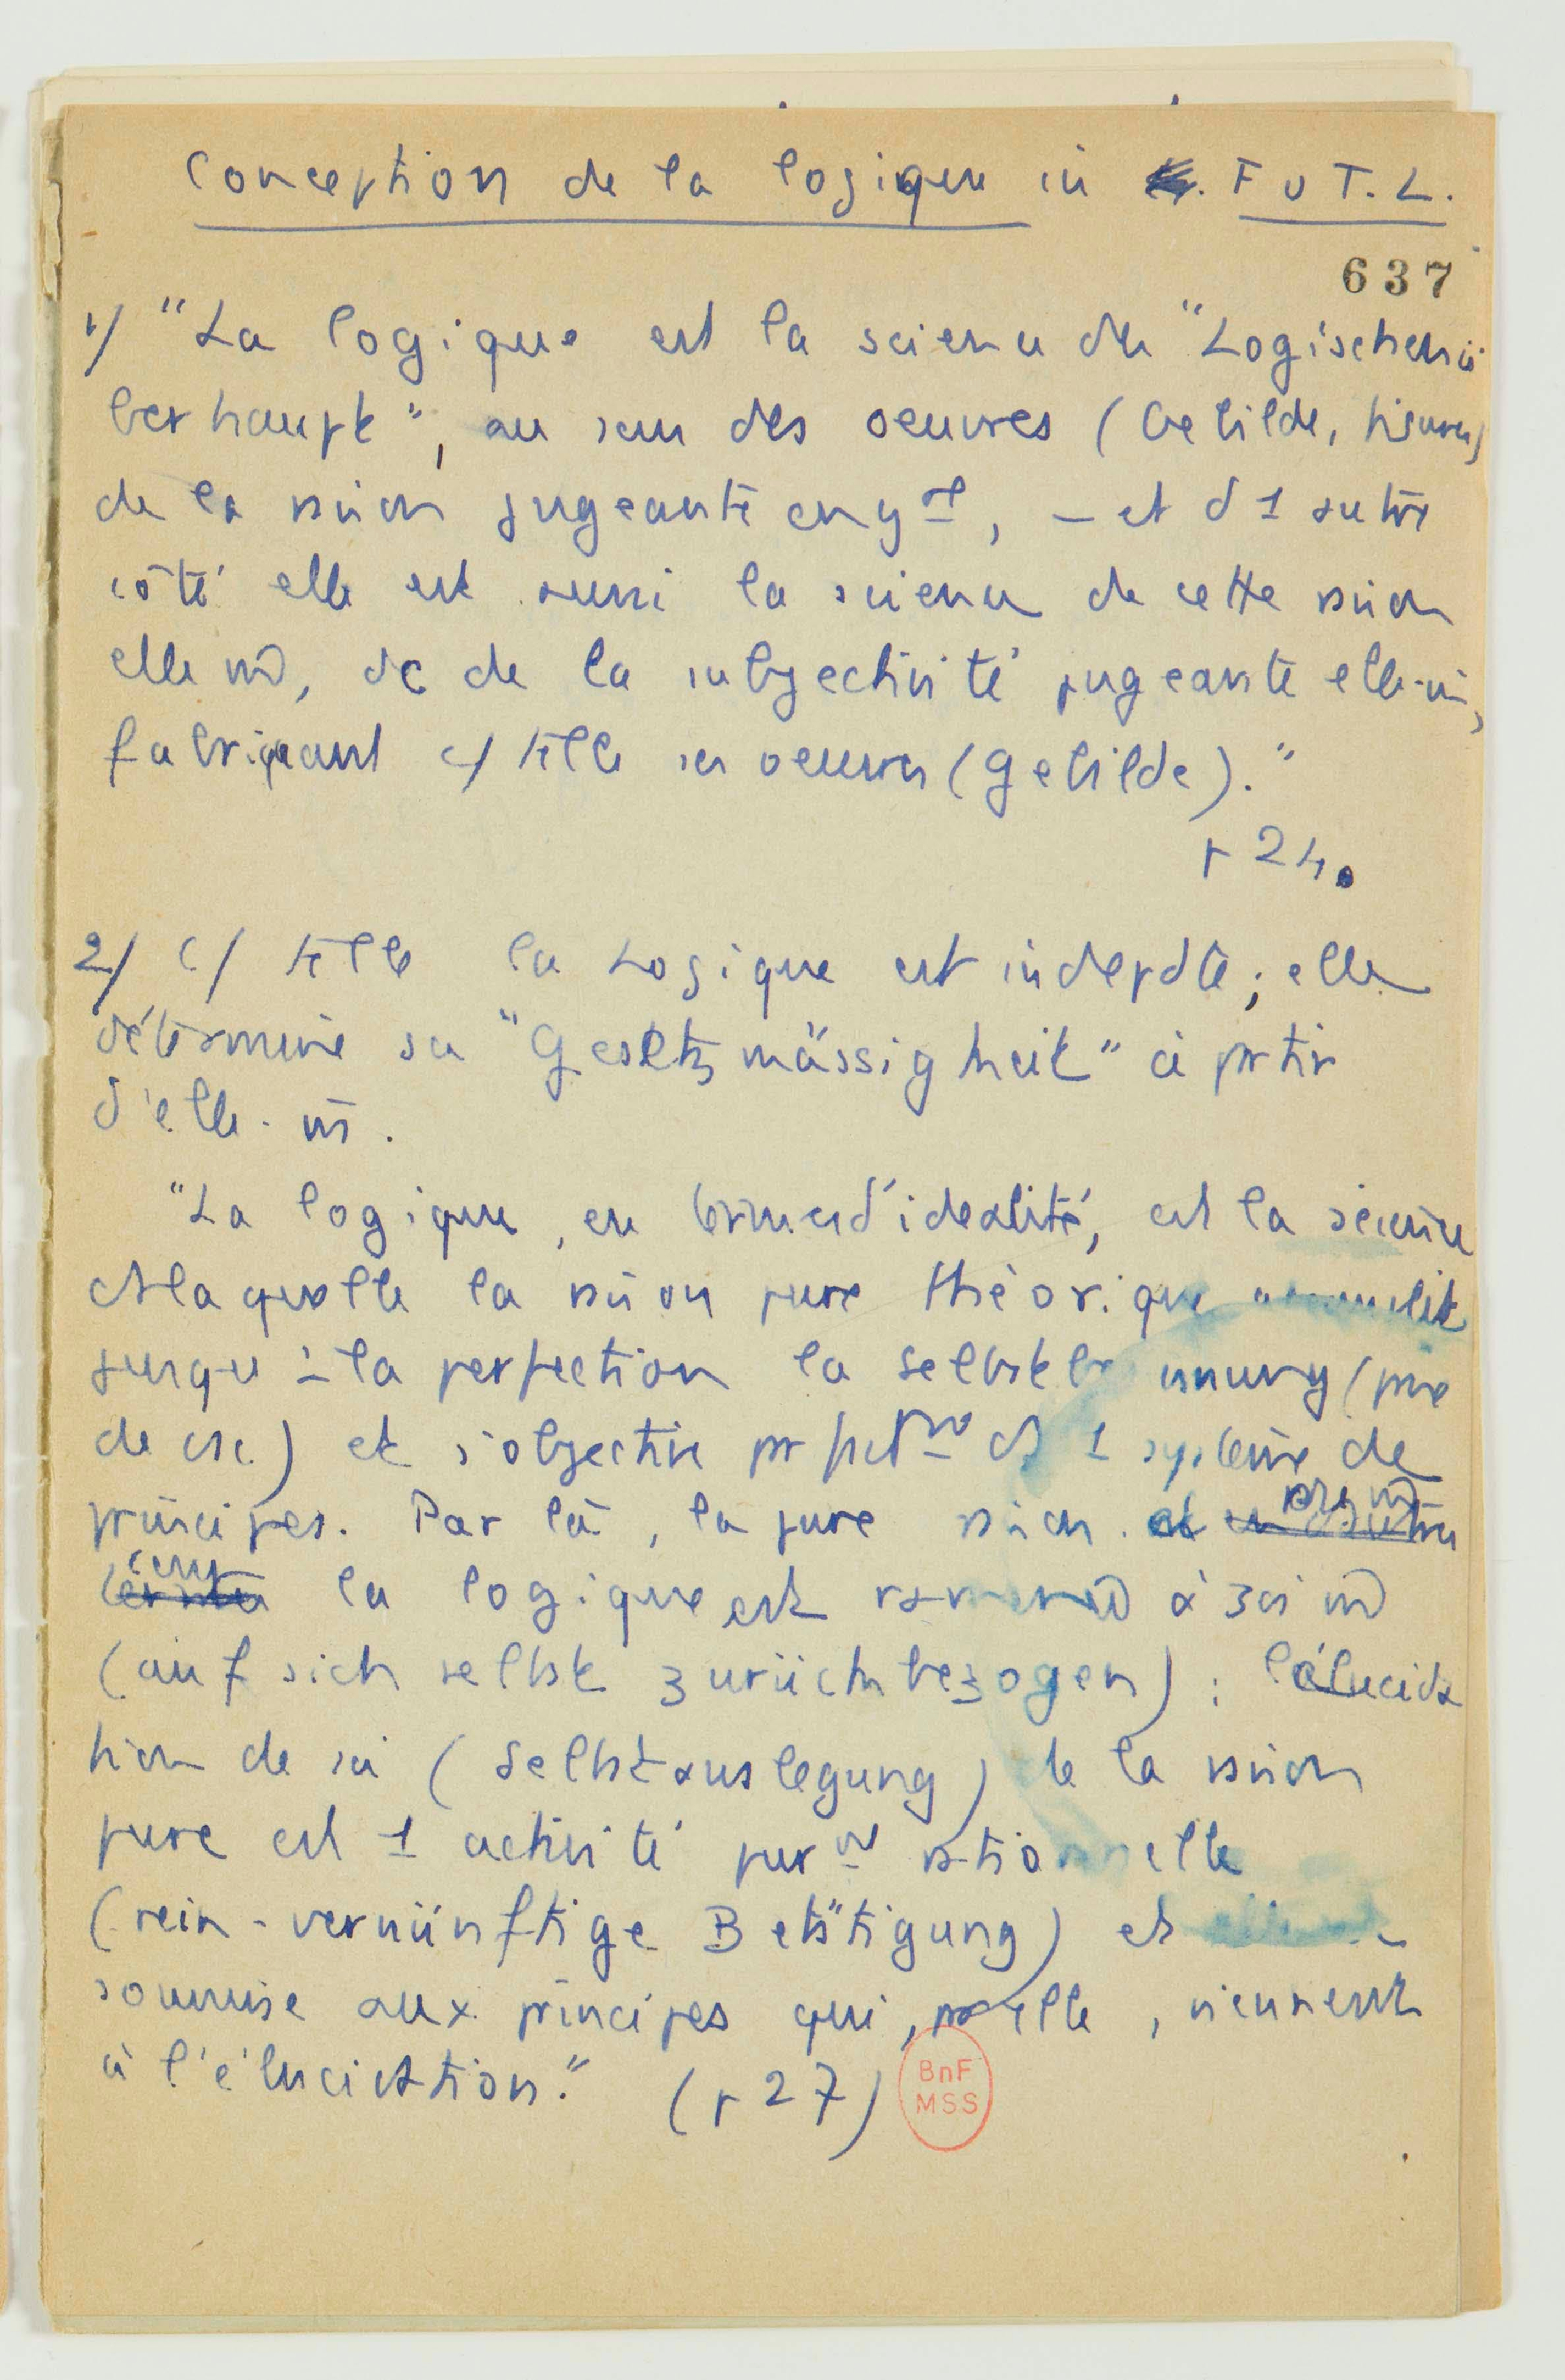 Conception de la logique in F u T. L.
637
1/ "La logique est la science du "Logischen ü
berhaupt", au sens des oeuvres (Gebilde, figures)
de la raison jugeante en gal, – et d 1 autre
côté elle est aussi la science de cette raison
elle m̄, dc de la subjectivité jugeante elle-m̄,
fabriquant c/ telle ses oeuvres (Gebilde)."
p 24.
2/ C/ telle la Logique est indepdte ; elle
détermine sa "Gesetzmässigkeit" à prtir
d'elle-m̄.
"La logique, en termes d'idealité, est la science
ds laquelle la raison pure théorique
jusqu'à la perfection la Selbstbesinnung (prise
de csc.) et s'objective ds 1 système de
principes. Par là, la pure raison
la logique est ramenée à soi m̄
(auf sich selbst zurückbezogen) : l'élucida
tion de soi (Selbstauslegung) de la raison
pure est 1 activité purmt rationnelle
(rein-vernünftige Betätigung) et
soumise aux principes qui, pr elle, viennent
à l'élucidation." (p 27)
BnF
MSS